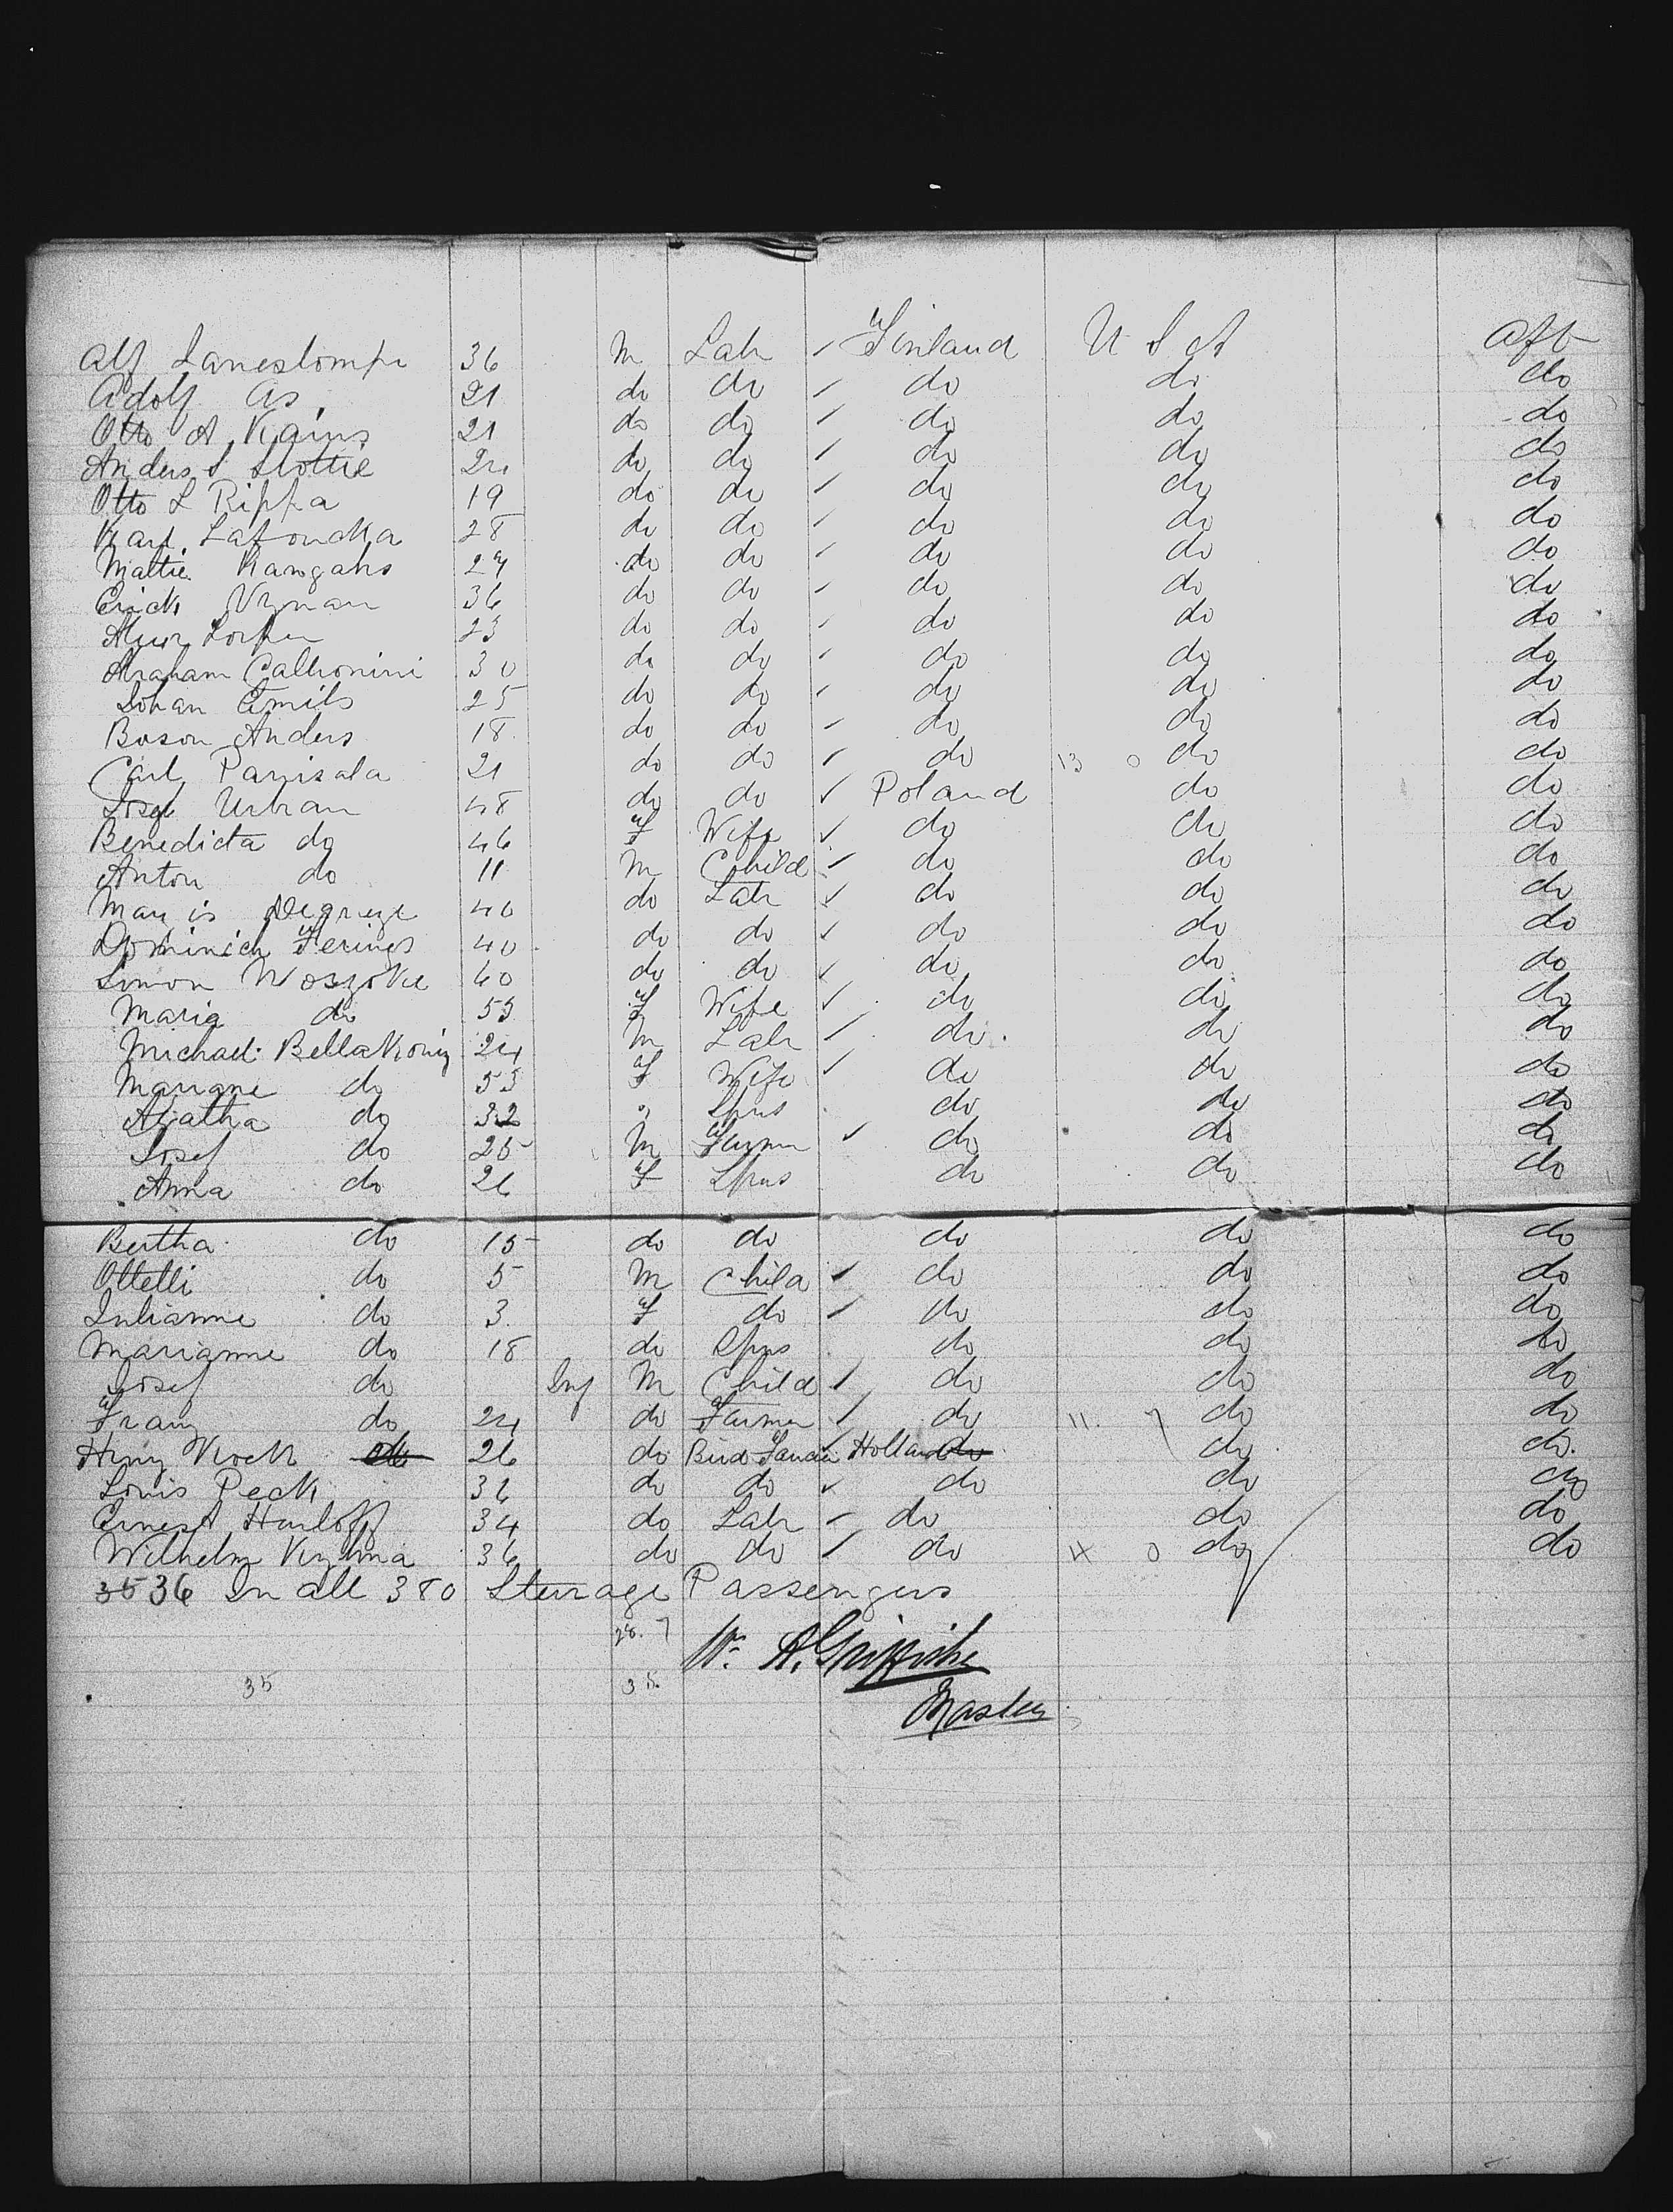 Alf Lanestompi 36 M Labr ✓ Finland U S A Aft
Adolf As 21 do do ✓ do do do
Otto A Kains 21 do do ✓ do do do
Anders S Slottie 24 do do ✓ do do do
Otto L Rippa 19 do do ✓ do do do
Karl Lafoncka 28 do do ✓ do do do
Mattie Kangahs 29 do do ✓ do do do
Erick Nyman 36 do do ✓ do do do
23 do do ✓ do do do
Abraham 30 do do ✓ do do do
Johan Emils 25 do do ✓ do do do
Boson Anders 18 do do ✓ do do do
Carl Panisala 21 do do ✓ do 13 0 do do
Josef Urban 48 do do ✓ Poland do do
Benedicta do 46 F Wife ✓ do do do
Anton do 11 M Child ✓ do do do
do Labr ✓ do do do
Dominich Ferings 40 do do ✓ do do do
Simon Woszoke 60 do do ✓ do do do
Maria do 53 F Wife ✓ do do do
Michael Bellakonig 24 M Labr ✓ do do do
Mariane do 53 F Wife ✓ do do do
Agatha do 32 Spns do do do
Josef do 25 M Farmer ✓ do do do
Anna do 26 F Spns do do do
Bertha do 15 do do do do do
Ottelli do 5 M Child ✓ do do do
Julianne do 3 F do ✓ do do do
Marianne do 18 do Spns do do do
Josef do Inf M Child ✓ do do do
Franz do 24 do Farmer ✓ do 11. 7 do do
Henry Kock do 26 do Bird Fancier Holland do do do
Louis Peck 36 do do ✓ do do do
Ernest Harloff 34 do Labr ✓ do do do
Wilhelm Kylma 36 do do ✓ do 4 0 do do
35 36 In all 380 Steerage Passengers
28. 7 Wm A. Griffiths
35 35
Master